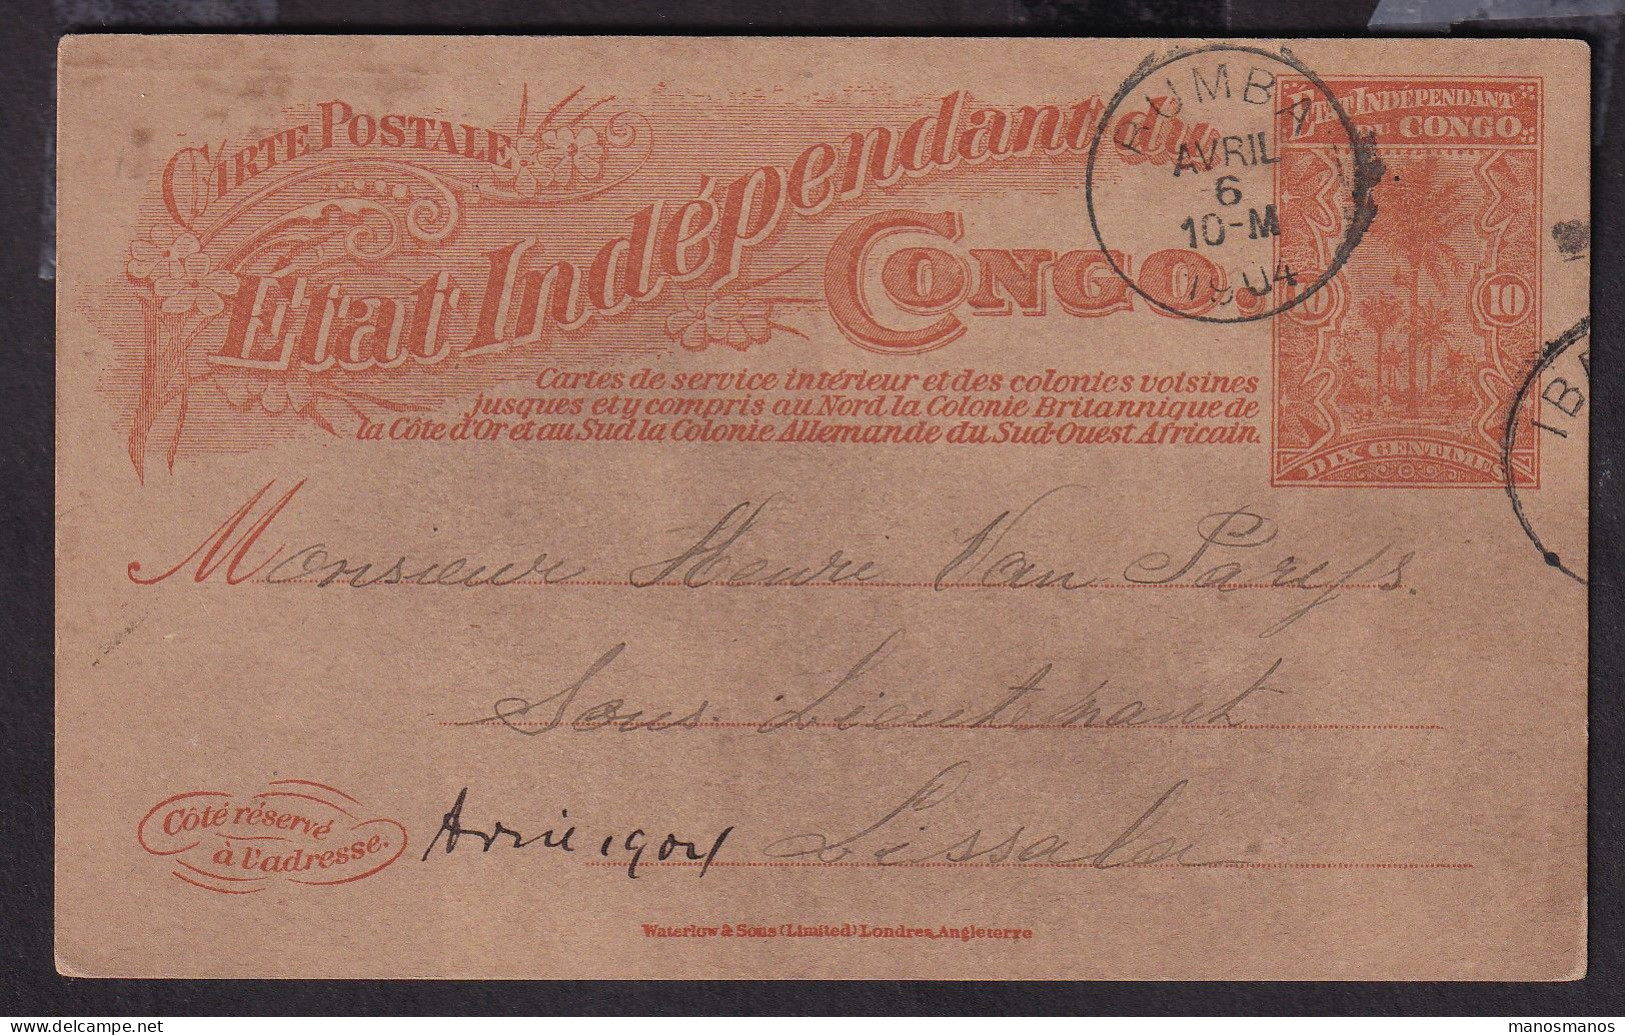 CARTE POSTALE
État Indépendant du
CONGO.
Cartes de service intérieur et des colonies voisines
jusques et y compris au Nord la Colonie Britannique de
la Côte d'Or et au Sud la Colonie Allemande du Sud-Ouest Africain.
UMBA
AVRIL
6
10-M
1904
ÉTAT INDÉPENDANT
DU CONGO
10
DIX CENTIMES
IB
Monsieur Henri Van Parijs.
Sous-Lieutenant
Lissala
Avril 1904
Côté réservé
à l'adresse.
Waterlow & Sons (Limited) Londres, Angleterre
manosmanos